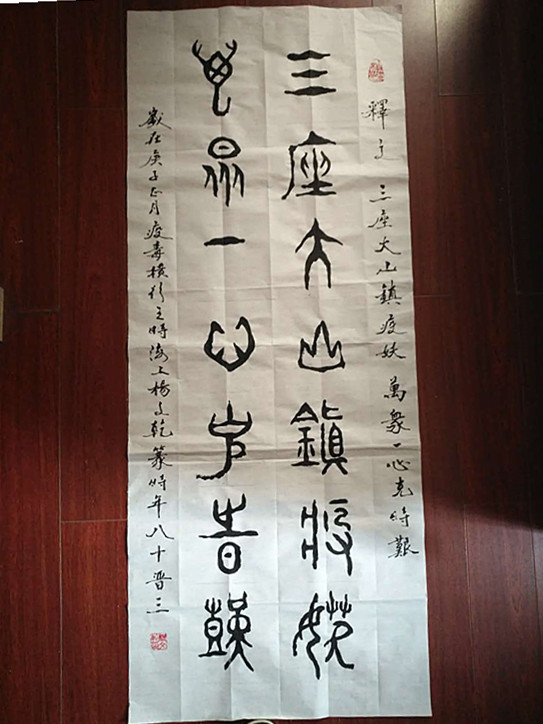 釋文 三座大山鎮疫妖 萬衆一心克時艱
三座大山鎮疫妖
萬衆一心克時艱
歲在庚子正月疫毒橫行之時海上楊文乾篆時年八十晉三